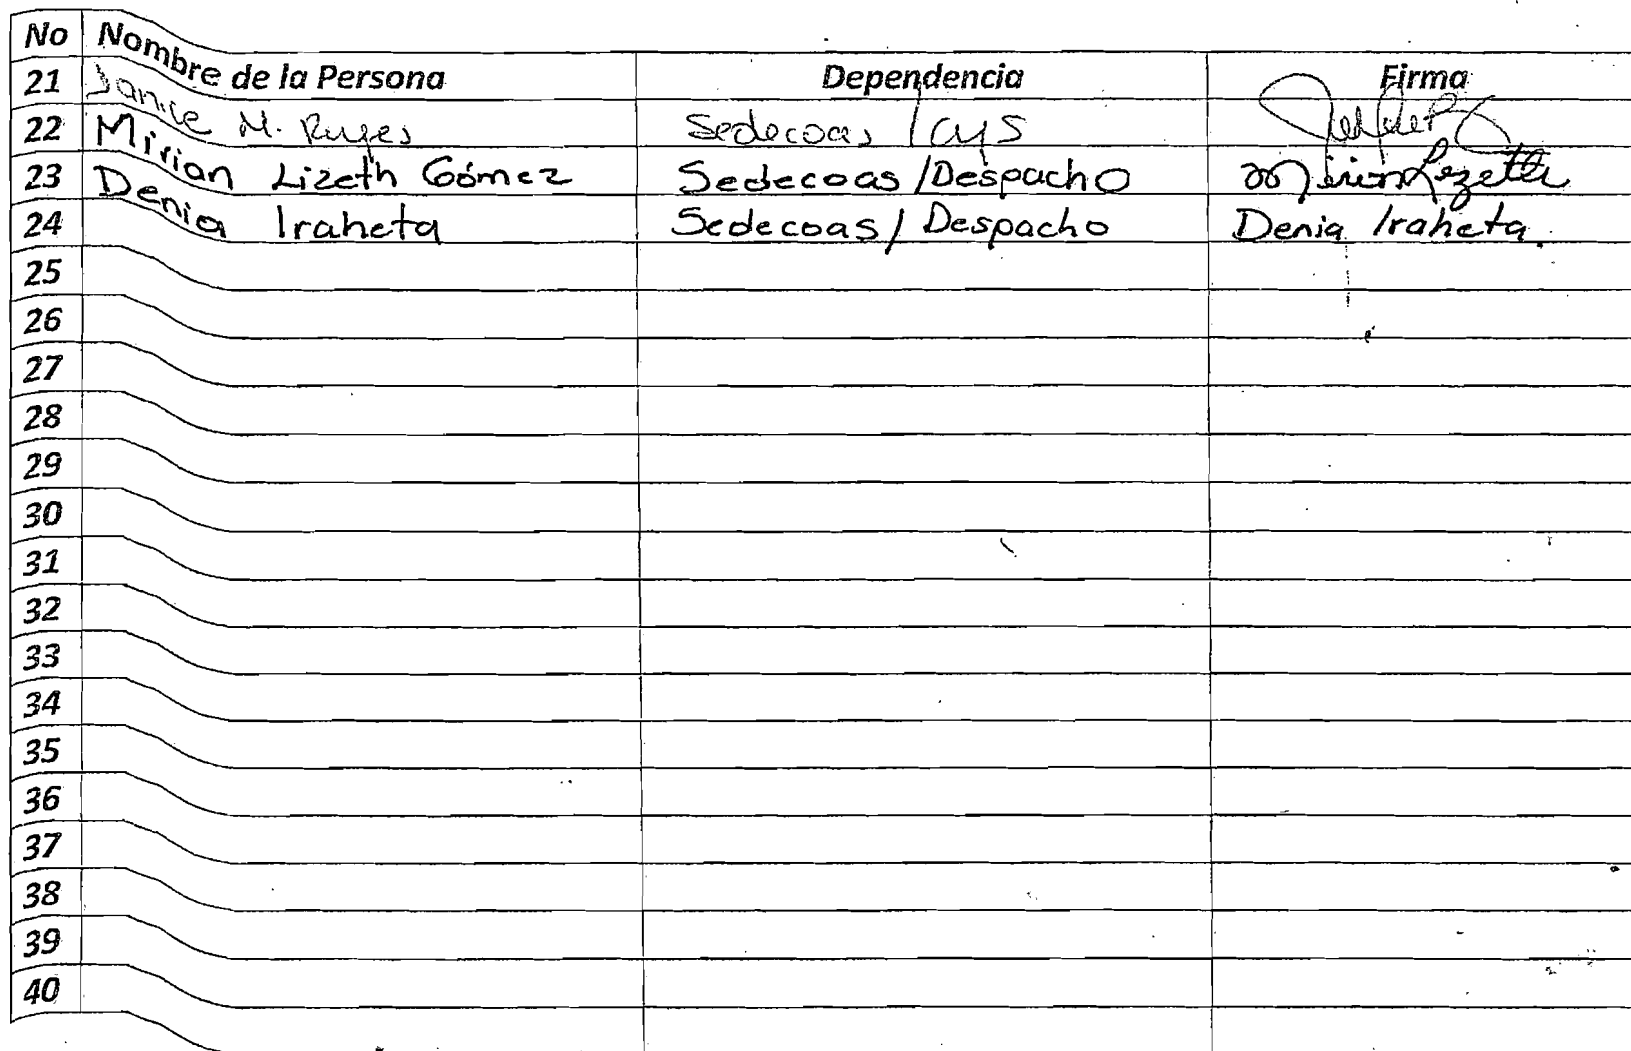 No Nombre de la Persona Dependencia Firma
21 Janice M. Reyes Sedecoas /
22 Mirian Lizeth Gómez Sedecoas /Despacho
23 Denia Iraheta Sedecoas / Despacho Denia Iraheta.
24
25
26
27
28
29
30
31
32
33
34
35
36
37
38
39
40